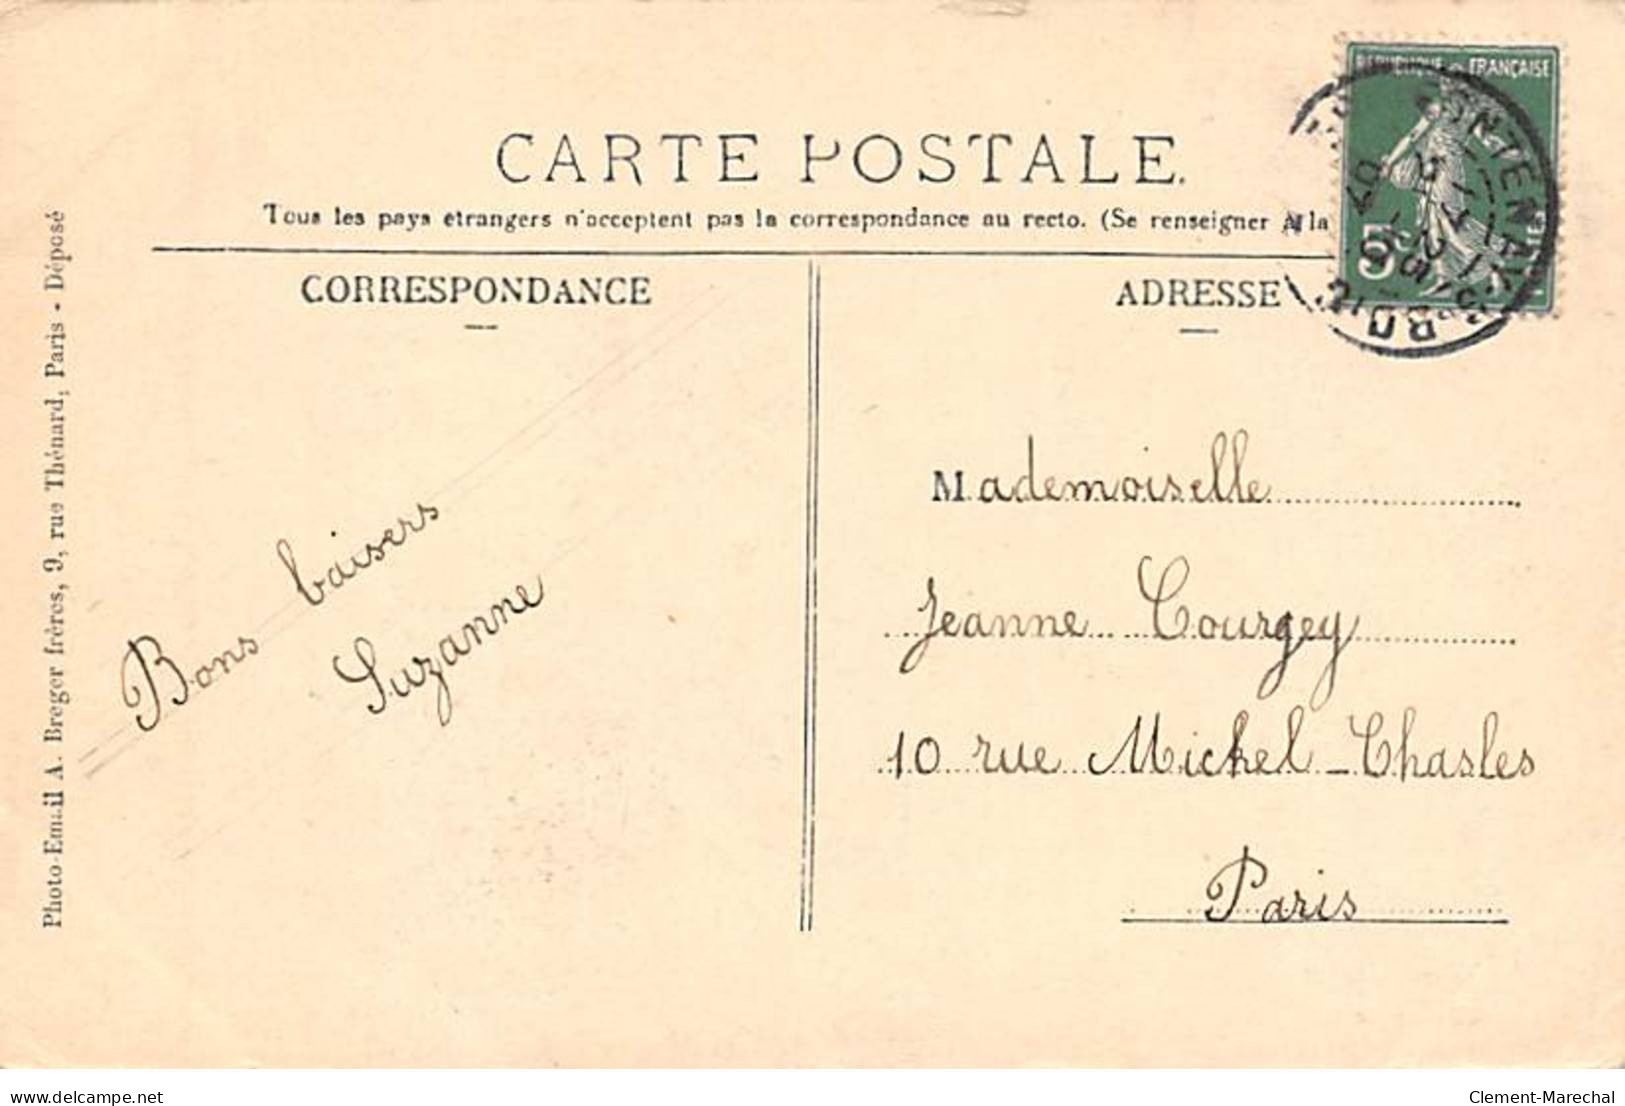 CARTE POSTALE.
Tous les pays étrangers n'acceptent pas la correspondance au recto. (Se renseigner à la
CORRESPONDANCE
ADRESSE
REPUBLIQUE FRANÇAISE
5c
FONTENAY-S-BOIS
07
Photo-Email A. Breger frères, 9, rue Thénard, Paris - Déposé
Bons baisers
Suzanne
Mademoiselle
Jeanne Courgey
10 rue Michel-Chasles
Paris
delcampe.net
Clement-Marechal